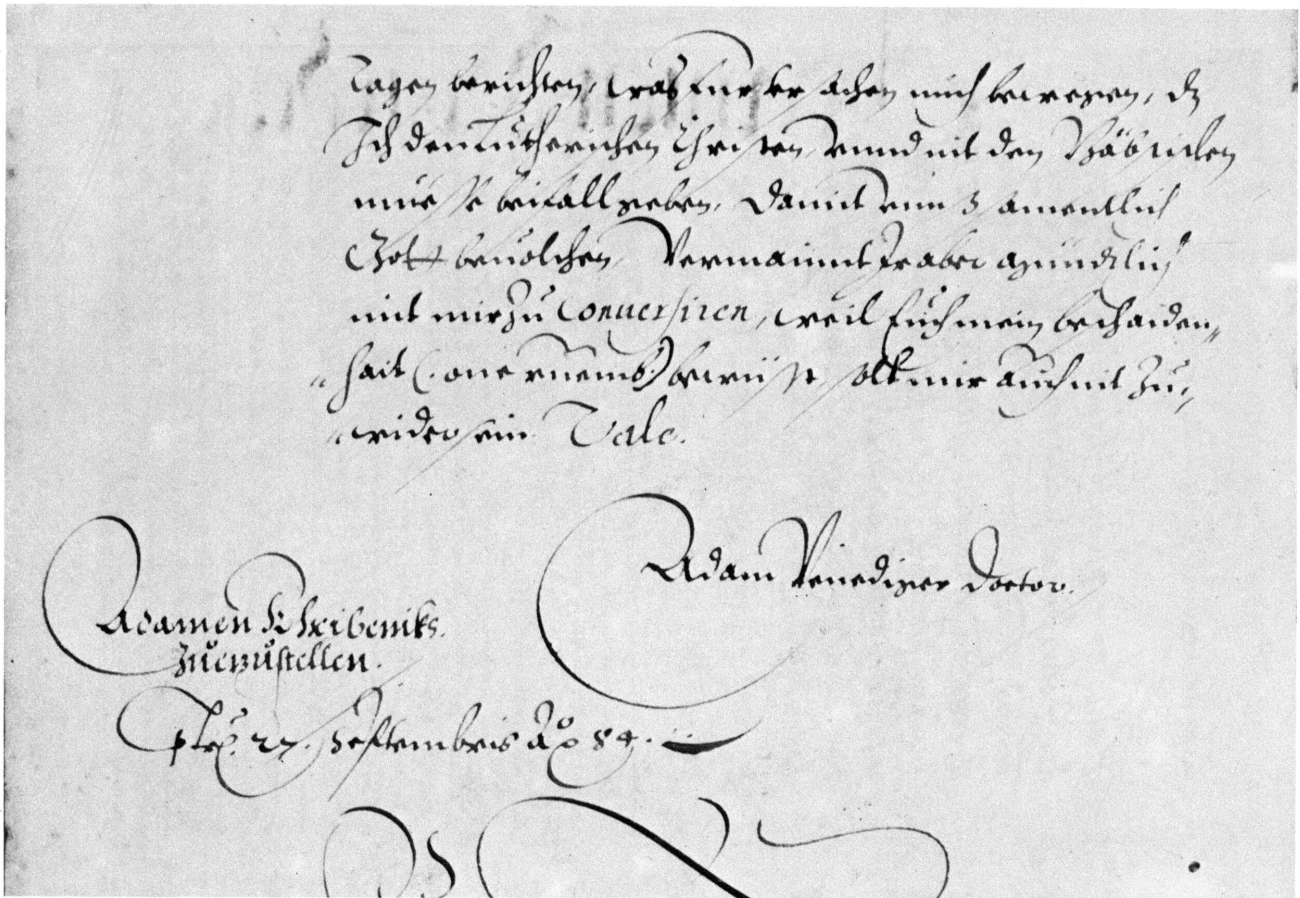 tagen berichten, was fur vrsachen mich bewegen, dz
Ich den Lutherischen Christen, vnnd nit den Bäbstlern
muesse beifall geben, damit vnns samentlich
Gott beuolchen, Vermainnt Ir aber gründtlich
mit mir zu Conuersiren, weil Euch mein beschaiden„
„hait (: one ruemb:) bewüsst, solt mir auch nit zu„
„wider sein Vale.
Adam Venediger Doctor.
Adamen Skhribenikh.
Zuezustellen.
27. Septembris Ao 84.